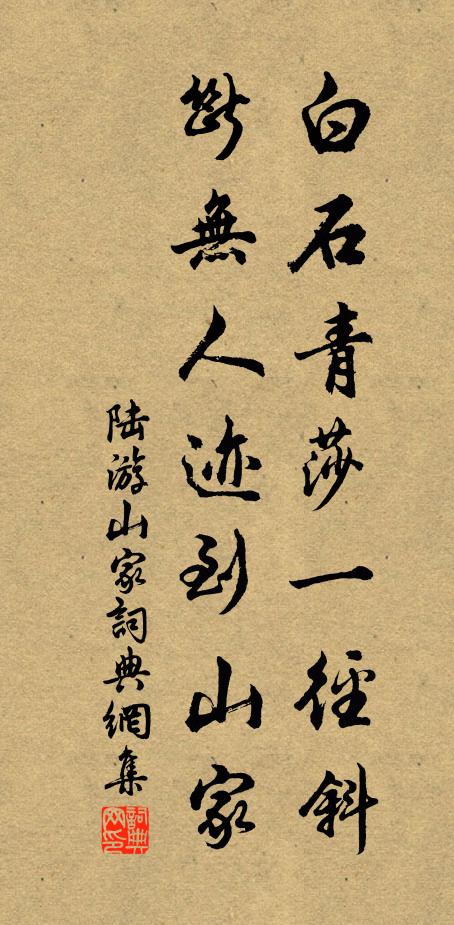 白石青莎一徑斜
斷無人迹到山家
陆游山家詞典網集
詞典网印